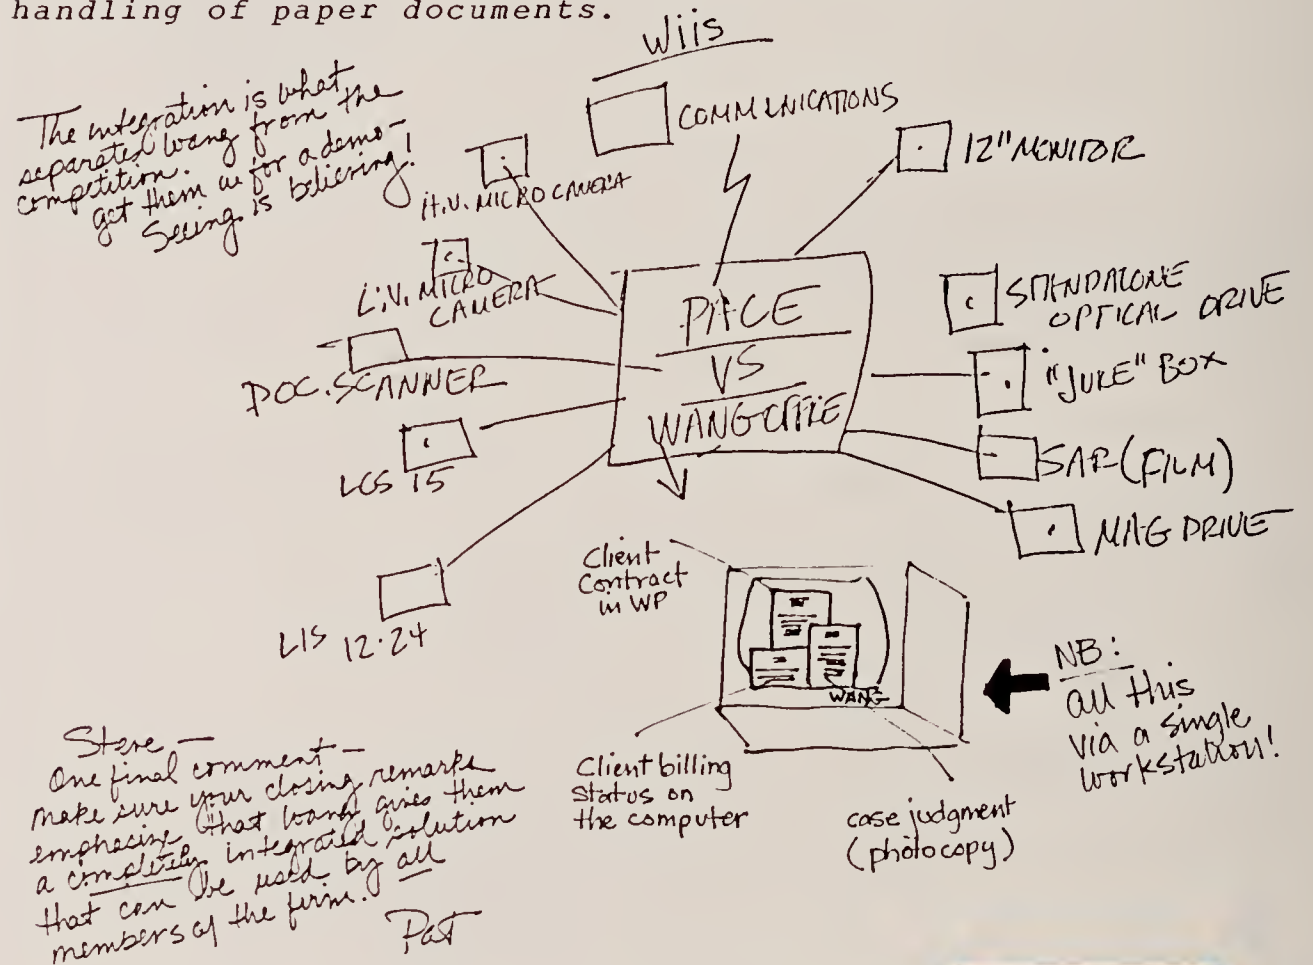 handling of paper documents.
The integration is what
separates Wang from the
competition.
get them in for a demo-
Seeing is believing!
Wiis
COMMUNICATIONS
12" MONITOR
H.V. MICRO CAMERA
L.V. MICRO
CAMERA
DOC. SCANNER
LCS 15
LIS 12-24
PACE
VS
WANG OFFICE
STANDALONE
OPTICAL DRIVE
"JUKE" BOX
SAR (FILM)
MAG DRIVE
Client
Contract
in WP
WANG
Client billing
status on
the computer
case judgment
(photocopy)
NB:
all this
via a single
workstation!
Steve —
One final comment —
make sure your closing remarks
emphasize that Wang gives them
a completely integrated solution
that can be used by all
members of the firm.
Pat